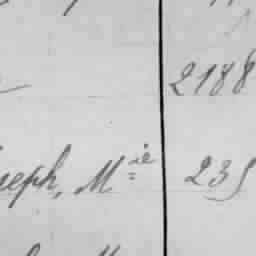 2188
seph, M^ie 235